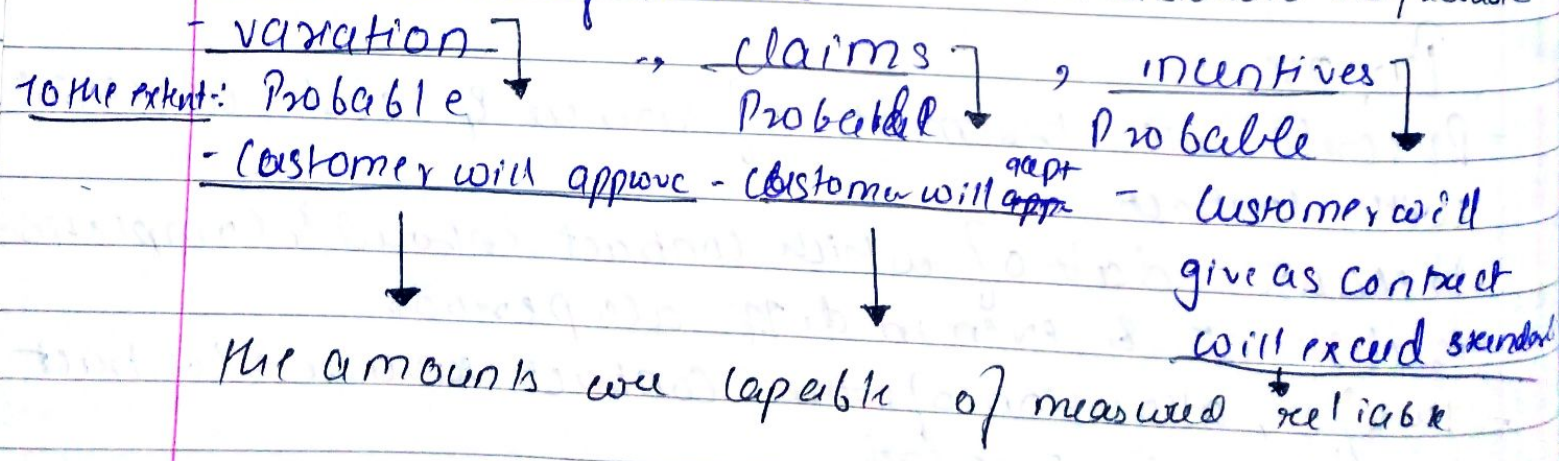 - variation , claims , incentives
To the extent :- Probable Probable Probable
- Customer will approve - Customer will accept - Customer will
give as contract
will exceed standard
the amounts are capable of measured reliable